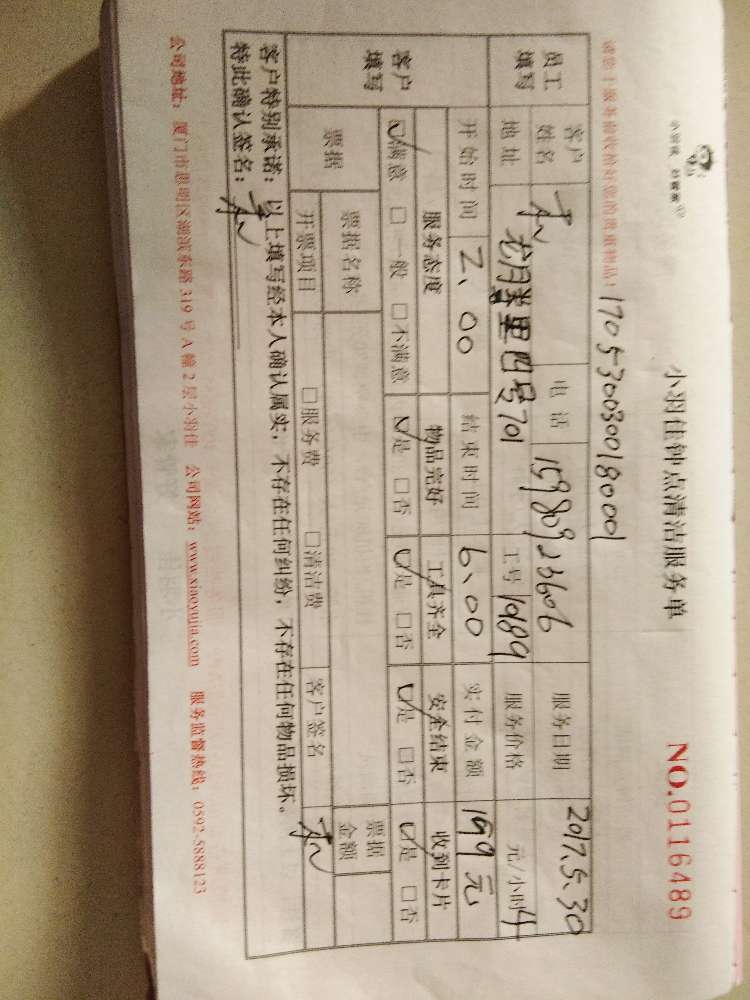 小羽佳钟点清洁服务单
NO.0116489
170530030018001
员工填写 客户姓名 电话 15980923606 服务日期 2017.5.30
地址 龙月墘里四号701 工号 10189 服务价格 元/小时 4
开始时间 2:00 结束时间 6:00 实付金额 199元
客户填写 服务态度 物品完好 工具齐全 安全结束 收到卡片
☑满意 □一般 □不满意 ☑是 □否 ☑是 □否 ☑是 □否 ☑是 □否
票据 票据名称 票据金额
开票项目 □服务费 □清洁费 客户签名
客户特别承诺：以上填写经本人确认属实，不存在任何纠纷，不存在任何物品损坏。
特此确认签名：
公司地址：厦门市思明区湖滨东路319号A幢2层小羽佳 公司网站：www.xiaoyujia.com 服务监督热线：0592-5888123